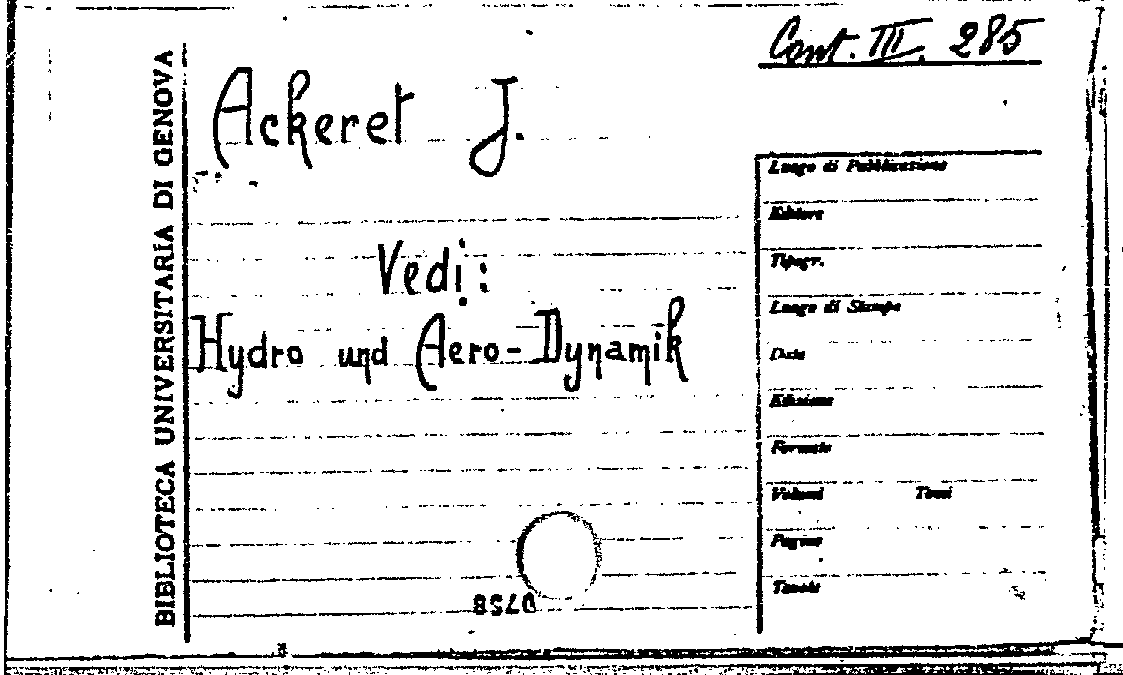 Cont. III. 285
BIBLIOTECA UNIVERSITARIA DI GENOVA
Ackeret J.
Vedi:
Hydro und Aero-Dynamik
Luogo di Pubblicazione
Editore
Tipogr.
Luogo di Stampa
Data
Edizione
Formato
Volumi Tomi
Pagine
Tavole
0758